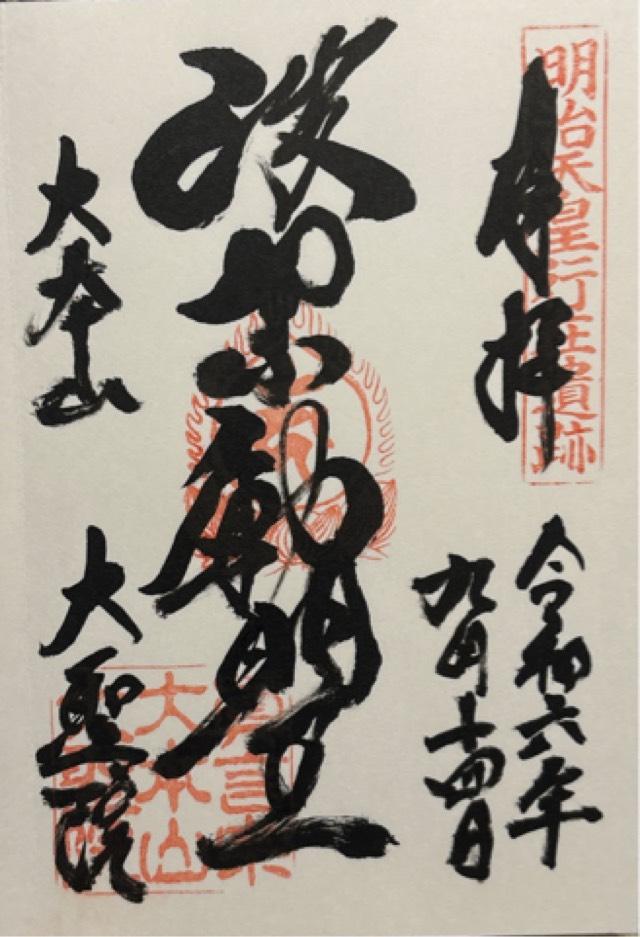 明治天皇行在遺跡
奉拝
令和六年
九月十四日
波切不動明王
大本山
大聖院
真言宗
大本山
大聖院